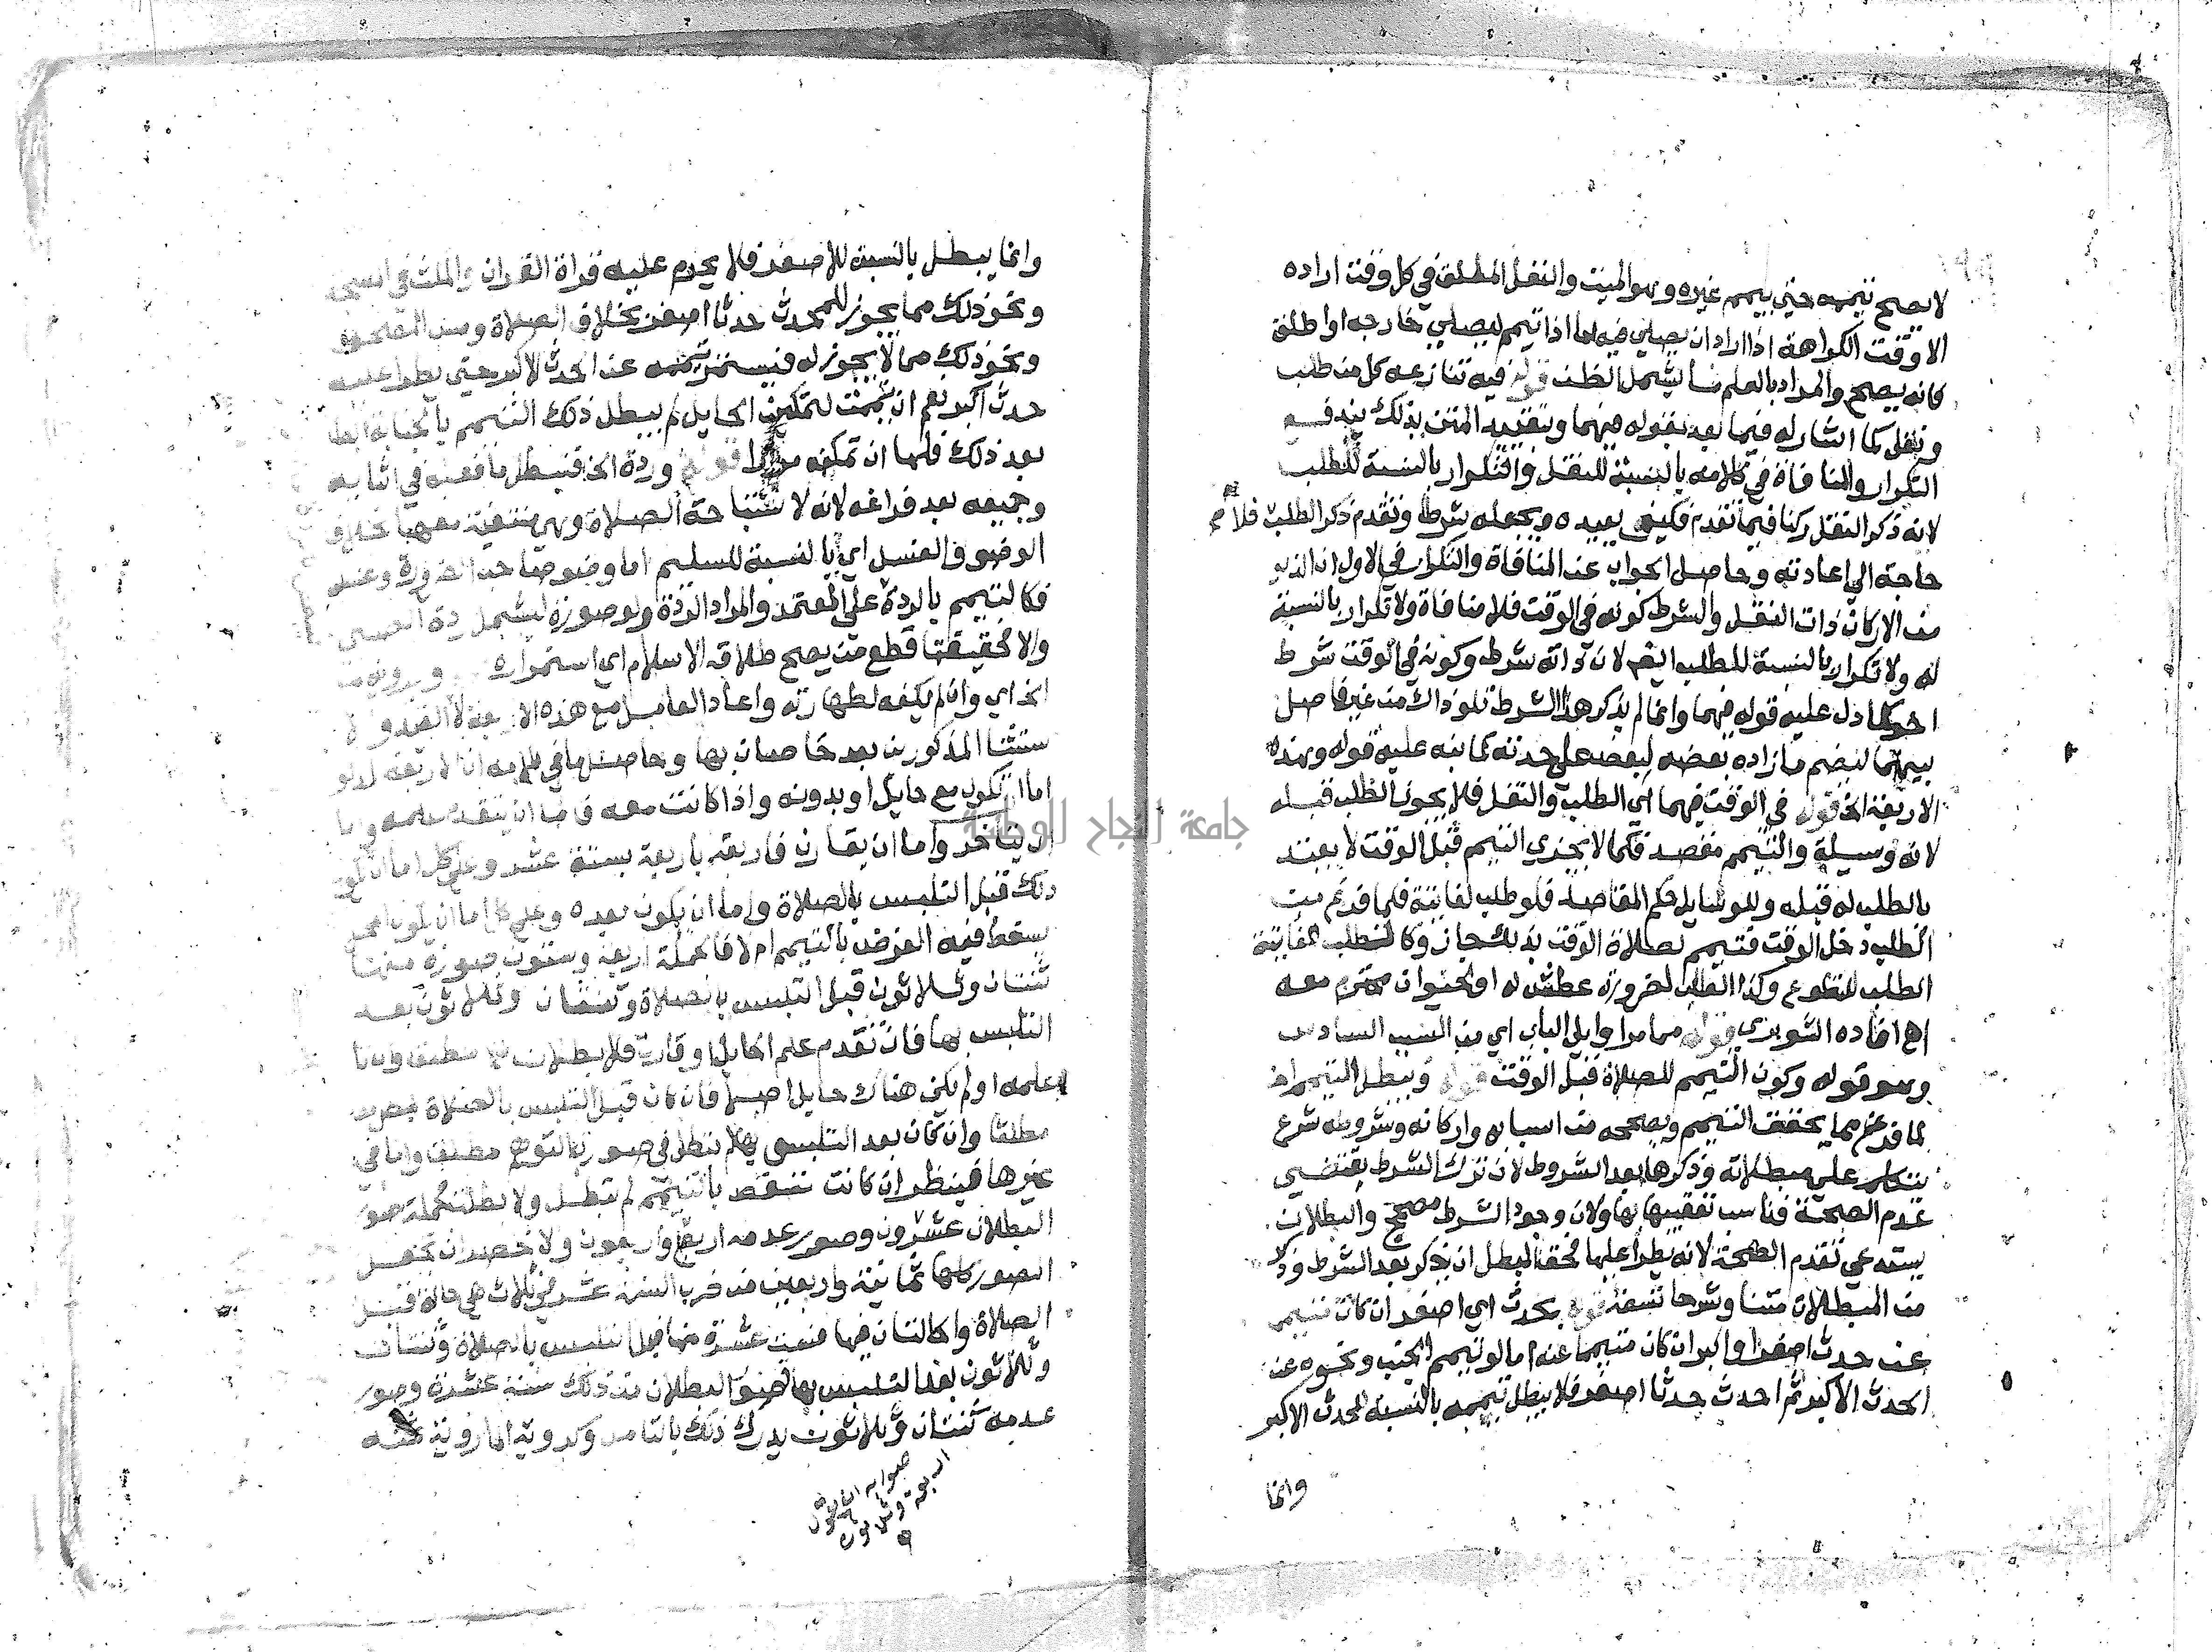 لا يصح تيممه حتي ييمم غيره وهو الميت والنفل المطلق في كل وقت اراده
الا وقت الكراهة اذا اراد ان يصلي فيه اما اذا تيمم ليصلي خارجه او اطلق
فانه يصح والمراد بالعلم ما يشمل الظن قوله فيه تنازعه كل من طلب
ونقل كما اشار له فيما بعد بقوله فيهما وتقييد المتن بذلك يندفع
التكرار والمنافاة في كلامه بالنسبة للنقل والتكرار بالنسبة للطلب
لانه ذكر النقل ركنا فيما تقدم فكيف يعيده ويجعله شرطا وتقدم ذكر الطلب فلا
حاجة الي اعادته وحاصل الجواب عند المنافاة والتكرار في الاول ان الذي
من الاركان ذات النقل والشرط كونه في الوقت فلا منافاة ولا تكرار بالنسبة
له ولا تكرار بالنسبة للطلب ايضا لان ذاته شرط وكونه في الوقت شرط
اخر كما دل عليه قوله فيهما وانما لم يذكر هذا الشرط تلو ذاك من غير فاصل
بينهما لينضم ما زاده بعضه لبعض علي حدته كما نبه عليه قوله وهذه
الاربعة الخ قوله في الوقت فيهما اي الطلب والنقل فلا يجوز الطلب قبله
لانه وسيلة والتيمم مقصد فكما لا يجزي التيمم قبل الوقت لا يعتد
بالطلب له قبله وللوسايل حكم المقاصد فلو طلب لفايتة فلما فرغ من
الطلب دخل الوقت فتيمم لصلاة الوقت بذلك جاز وكالطلب للفايتة
الطلب للتطوع وكذا الطلب لضرورة عطش له او لحيوان محترم معه
اه افاده الشوبري قوله مما مر اوايل الباب اي من السبب السادس
وهو قوله وكون التيمم للصلاة قبل الوقت قوله ويبطل التيمم الخ
لما فرغ مما يحقق التيمم ويصححه من اسبابه واركانه وشروطه شرع
يتكلم علي مبطلاته وذكرها بعد الشروط لان ترك الشرط يقتضي
عدم الصحة فناسب تعقيبها بها ولان وجود الشرط مصحح والبطلان
يستدعي تقدم الصحة لانه يطرا عليها فحق المبطل ان يذكر بعد الشرط وذكر
من المبطلات متنا وشرحا تسعة قوله بحدث اي اصغر ان كان تيمم
عن حدث اصغر او اكبر ان كان متيمما عنه اما لو تيمم الجنب ونحوه عن
الحدث الاكبر ثم احدث حدثا اصغر فلا يبطل تيممه بالنسبة للحدث الاكبر
وانما
وانما يبطل بالنسبة للاصغر فلا يحرم عليه قراة القران والمكث في المسجد
ونحو ذلك مما يجوز للمحدث حدثا اصغر بخلاف الصلاة ومس المصحف
ونحو ذلك مما لا يجوز له فيستمر تيممه عن الحدث الاكبر حتي يطرا عليه
حدث اكبر نعم ان تيممت لتمكين الحليل لم يبطل ذلك التيمم بالجنابة
بعد ذلك فلها ان تمكنه مرارا قوله وردة الخ فيبطل ما فعله في اثنايه
وجميعه بعد فراغه لانه لاستباحة الصلاة وهي منتفية معها بخلاف
الوضو والغسل اي بالنسبة للسليم اما وضو صاحب الضرورة وغسله
فكالتيمم بالردة علي المعتمد والمراد الردة ولو صورة ليشمل ردة الصبي
والا فحقيقتها قطع من يصح طلاقه الاسلام اي استمراره
الخ اي وان لم يكفه لطهارته واعاد العامل مع هذه الاربعة لان القيد ولا
ستثنا المذكورين بعد خاصان بها وحاصلها في كلامه ان الاربعة
اما ان تكون مع حايل او بدونه واذا كانت معه فاما ان يتقدم علمه واما
ان يتاخر واما ان يقارن فاربعة باربعة بستة عشر وعلي كل اما ان يكون
ذلك قبل التلبس بالصلاة واما ان يكون بعده وعلي كل اما ان يكون المحل
يسقط فيه الفرض بالتيمم ام لا فالجملة اربعة وستون صورة منها
ثنتان وثلاثون قبل التلبس بالصلاة وثنتان وثلاثون بعد
التلبس بها فان تقدم علم الحايل او قارن فلا بطلان مطلقا وان تاخر
علمه او لم يكن هناك حايل اصلا فان كان قبل التلبس بالصلاة بطل
مطلقا وان كان بعد التلبس بها بطل في صورة التوهم مطلقا واما في
غيرها فينظر ان كانت تسقط بالتيمم لم تبطل والا بطلت فجملة صور
البطلان عشرون وصور عدمه اربع واربعون ولا
الصور كلها ثمانية واربعين من ضرب الستة عشر في ثلاث هي حالة قبل
الصلاة والحالتان فيها فستة عشرة منها قبل التلبس بالصلاة وثنتان
وثلاثون بعد التلبس بها فصور البطلان من ذلك ستة عشرة وصور
عدمه ثنتان وثلاثون يدرك ذلك بالتامل وكروية الما روية
صوابه
اربعة وثلاثون